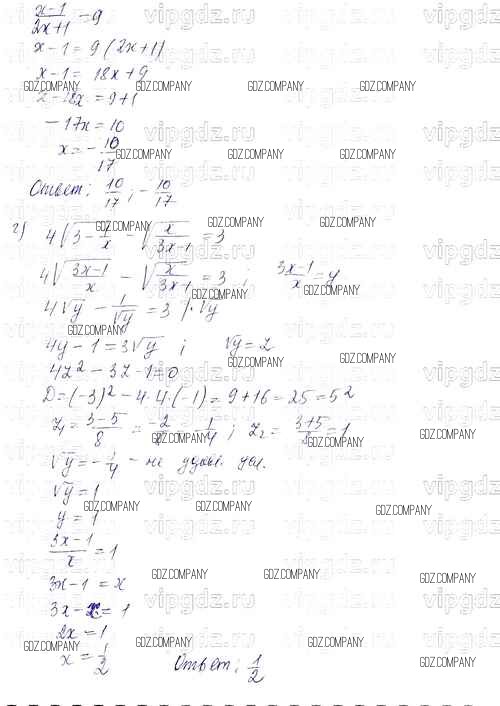 x-1/2x+1 = 9
x-1 = 9(2x+1)
x-1 = 18x+9
x-18x = 9+1
-17x = 10
x = -10/17
Ответ: 10/17; -10/17
г) 4√(3-1/x) - √(x/3x-1) = 3
4√(3x-1/x) - √(x/3x-1) = 3 ; 3x-1/x = y
4√y - 1/√y = 3 |·√y
4y-1 = 3√y ; √y = z
4z²-3z-1=0
D=(-3)²-4·4·(-1)=9+16=25=5²
z₁ = 3-5/8 = -2/8 = -1/4 ; z₂ = 3+5/8 = 1
√y = -1/4 - не удовл. усл.
√y = 1
y = 1
3x-1/x = 1
3x-1 = x
3x-x = 1
2x = 1
x = 1/2 Ответ: 1/2
vipgdz.ru
GDZ.COMPANY